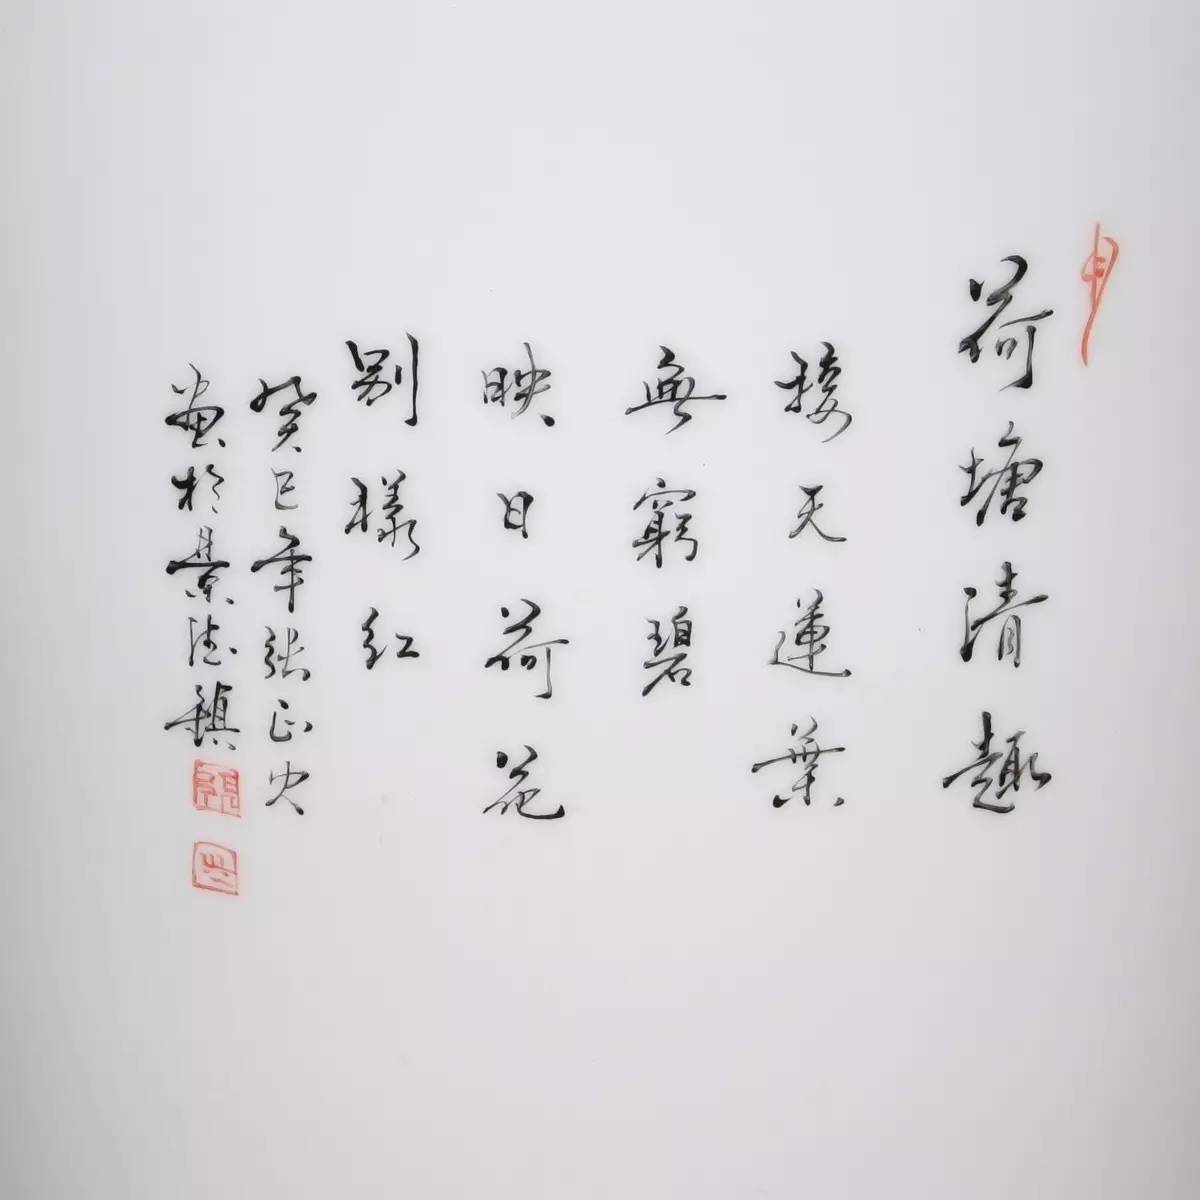 荷塘清趣
接天蓮葉
無窮碧
映日荷花
別樣紅
癸巳年張正文
畫於景德鎮